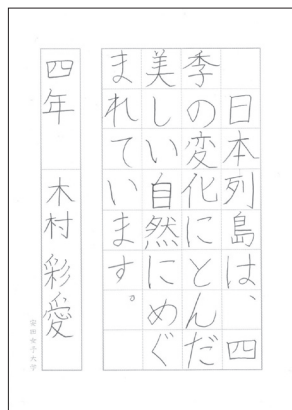 日本列島は、四
季の変化にとんだ
美しい自然にめぐ
まれています。
四年 木村彩愛
安田女子大学